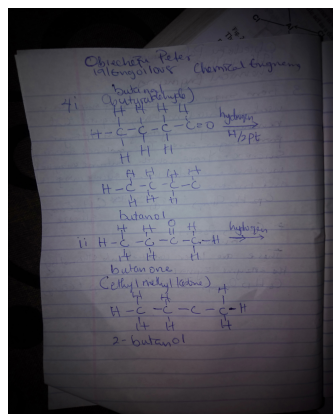 Obiechefu Peter
19/Engo1/008 Chemical Engineering
butanal
4i (butyraldehyde)
H H H H
H-C-C-C-C=O hydrogen
H H H H/Pt
H H H H
H-C-C-C-C
H H H
butanol
H H O H
ii H-C-C-C-C-H hydrogen
H H H
butanone
(ethyl methyl ketone)
H H H
H-C-C-C-C-H
H H H
2-butanol